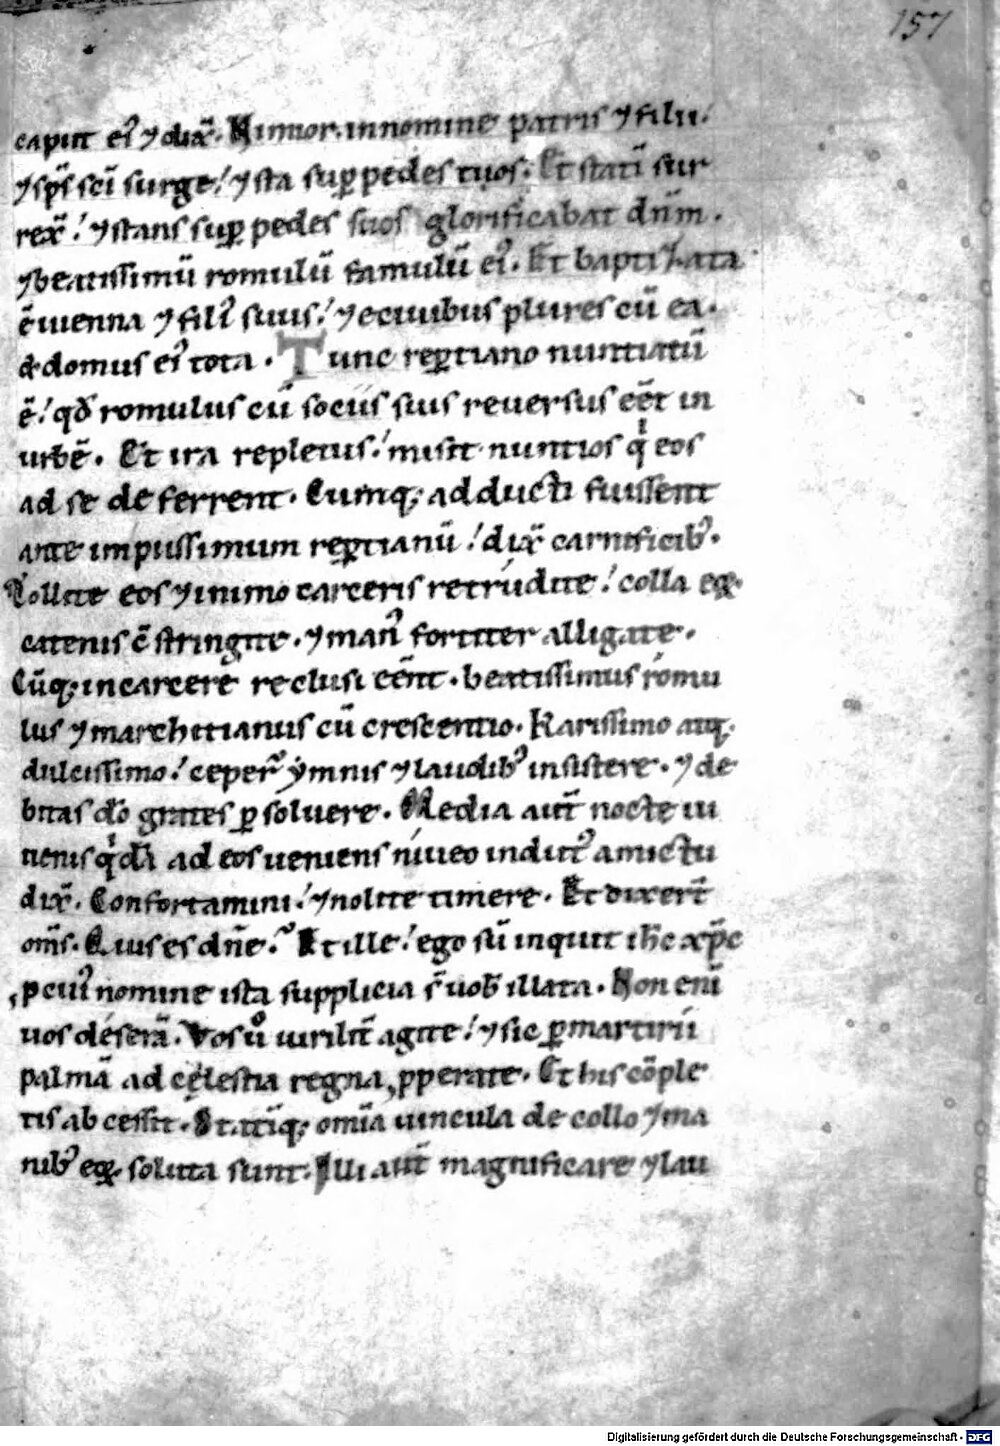 157
caput eiꝰ ⁊ dix̅. Nimior. in nomine patris ⁊ filii.
⁊ sp̅s sc̅i surge! ⁊ sta suꝑ pedes tuos. Et stati̅ sur
rex̅! ⁊ stans suꝑ pedes suos glorificabat dn̅m.
⁊ beatissimu̅ romulu̅ famulu̅ eiꝰ. Et baptizata
e̅ uienna ⁊ filiꝰ suus! ⁊ e ciuibus plures cu̅ ea.
& domus eiꝰ tota. Tunc reꝑtiano nuntiatu̅
e̅! qđ romulus cu̅ sociis suis reuersus ee̅t in
urbe̅. Et ira repletus! misit nuntios qͥ eos
ad se deferrent. Cumq; adducti fuissent
ante impiissimum reꝑtianu̅! dix̅ carnificibꝰ.
Tollite eos ⁊ in imo carceris retrudite! colla eoꝝ
catenis c̅stringite. ⁊ manꝰ fortiter alligate.
Cu̅q; in carcere reclusi ee̅nt. beatissimus romu
lus ⁊ marchetianus cu̅ crescentio. Karissimo atq;
dulcissimo! ceper̅ ẏmnis ⁊ laudibꝰ insistere. ⁊ de
bitas do̅ grates ꝑsoluere. Media aut̅ nocte iu
uenis qͥda̅ ad eos ueniens niueo indutꝰ amictu
dix̅. Confortamini! ⁊ nolite timere. Et dixer̅t
om̅s. Quis es dn̅e? Et ille! ego su̅ inquit ih̅c xp̅c
ꝓ cuiꝰ nomine ista supplicia s̅ uob̅ illata. Non eni̅
uos désera̅. Vos u̅ͦ uirilit̅ agite! ⁊ sic ꝑ martirii
palma̅ ad cęlestia regna ꝓperate. Et his co̅ple
tis abcessit. Stati̅q; omi̅a uincula de collo ⁊ ma
nibꝰ eoꝝ soluta sunt. Illi aut̅ magnificare ⁊ lau
Digitalisierung gefördert durch die Deutsche Forschungsgemeinschaft - DFG